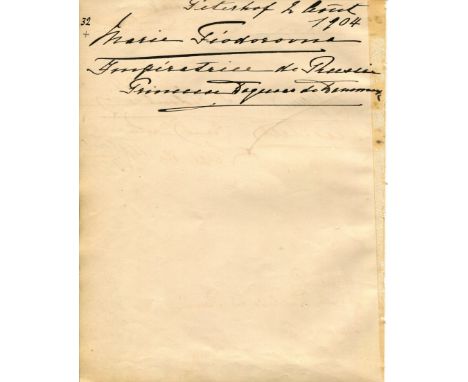 Peterhof 2 Août
1904
32
+
Marie Féodorovna
Impératrice de Russie
Princesse Dagmar de Danemark